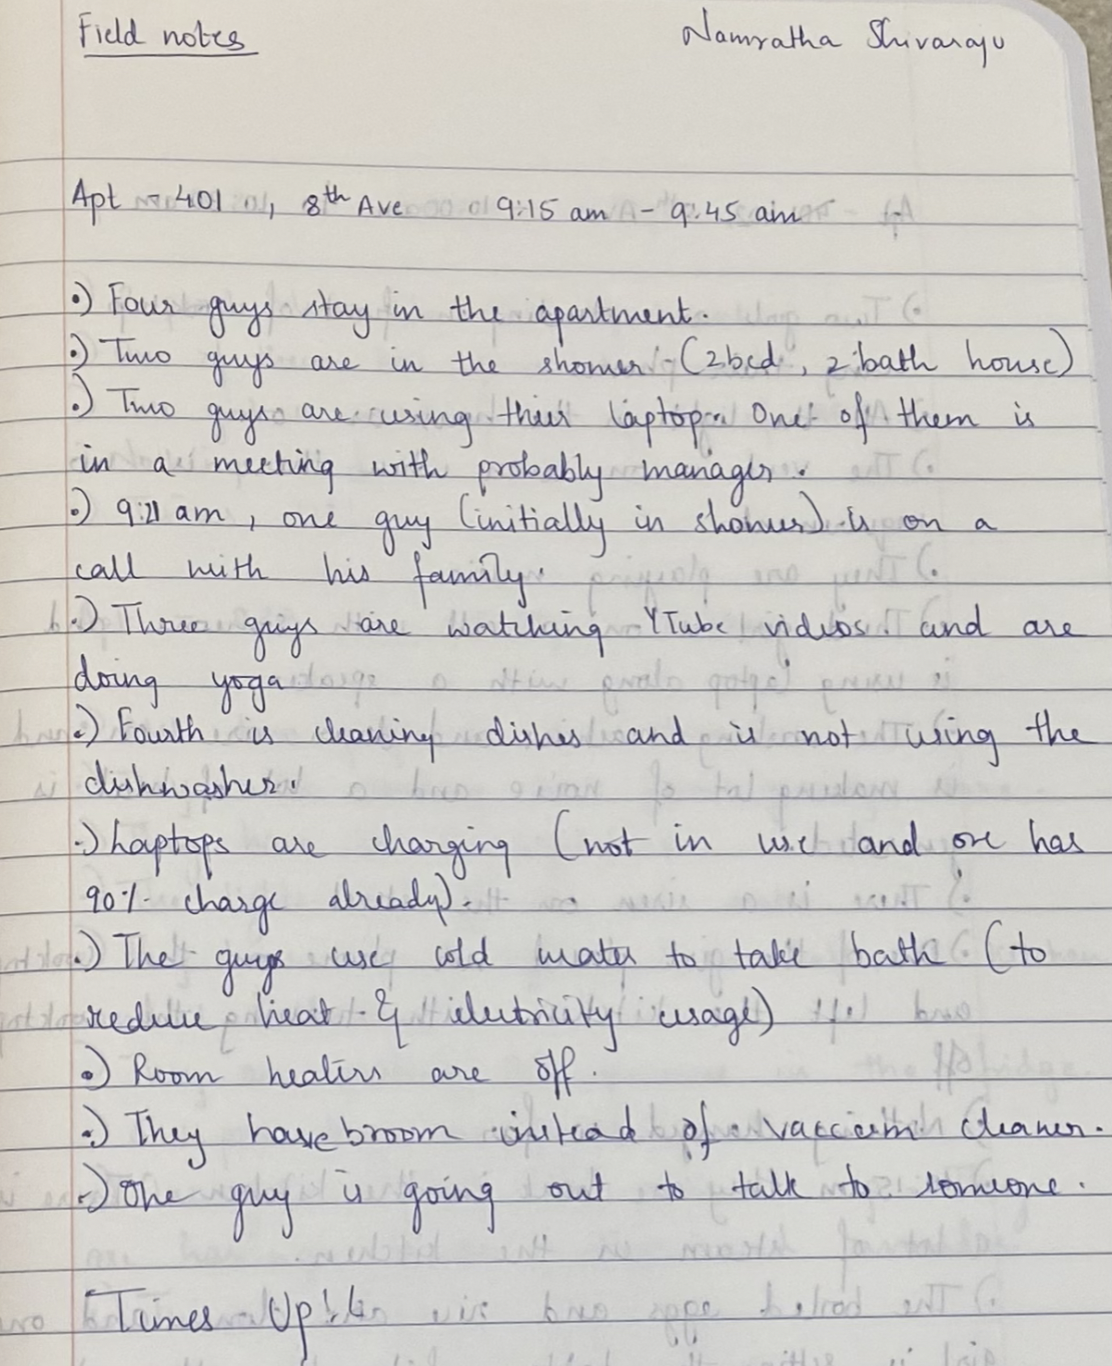 Field notes Namratha Shivaraju
Apt - 401 , 8th Ave 9:15 am - 9:45 am
•) Four guys stay in the apartment.
•) Two guys are in the shower - (2bed , 2 bath house)
•) Two guys are using their laptop. One of them is
in a meeting with probably manager.
•) 9:21 am , one guy (initially in shower) is on a
call with his family.
•) Three guys are watching YTube videos and are
doing yoga
•) Fourth is cleaning dishes and is not using the
dishwasher.
•) Laptops are charging (not in use and one has
90% charge already).
•) The guys use cold water to take bath (to
reduce heat & electricity usage)
•) Room heaters are off.
•) They have broom instead of vaccum cleaner.
•) One guy is going out to talk to someone.
Times Up!!